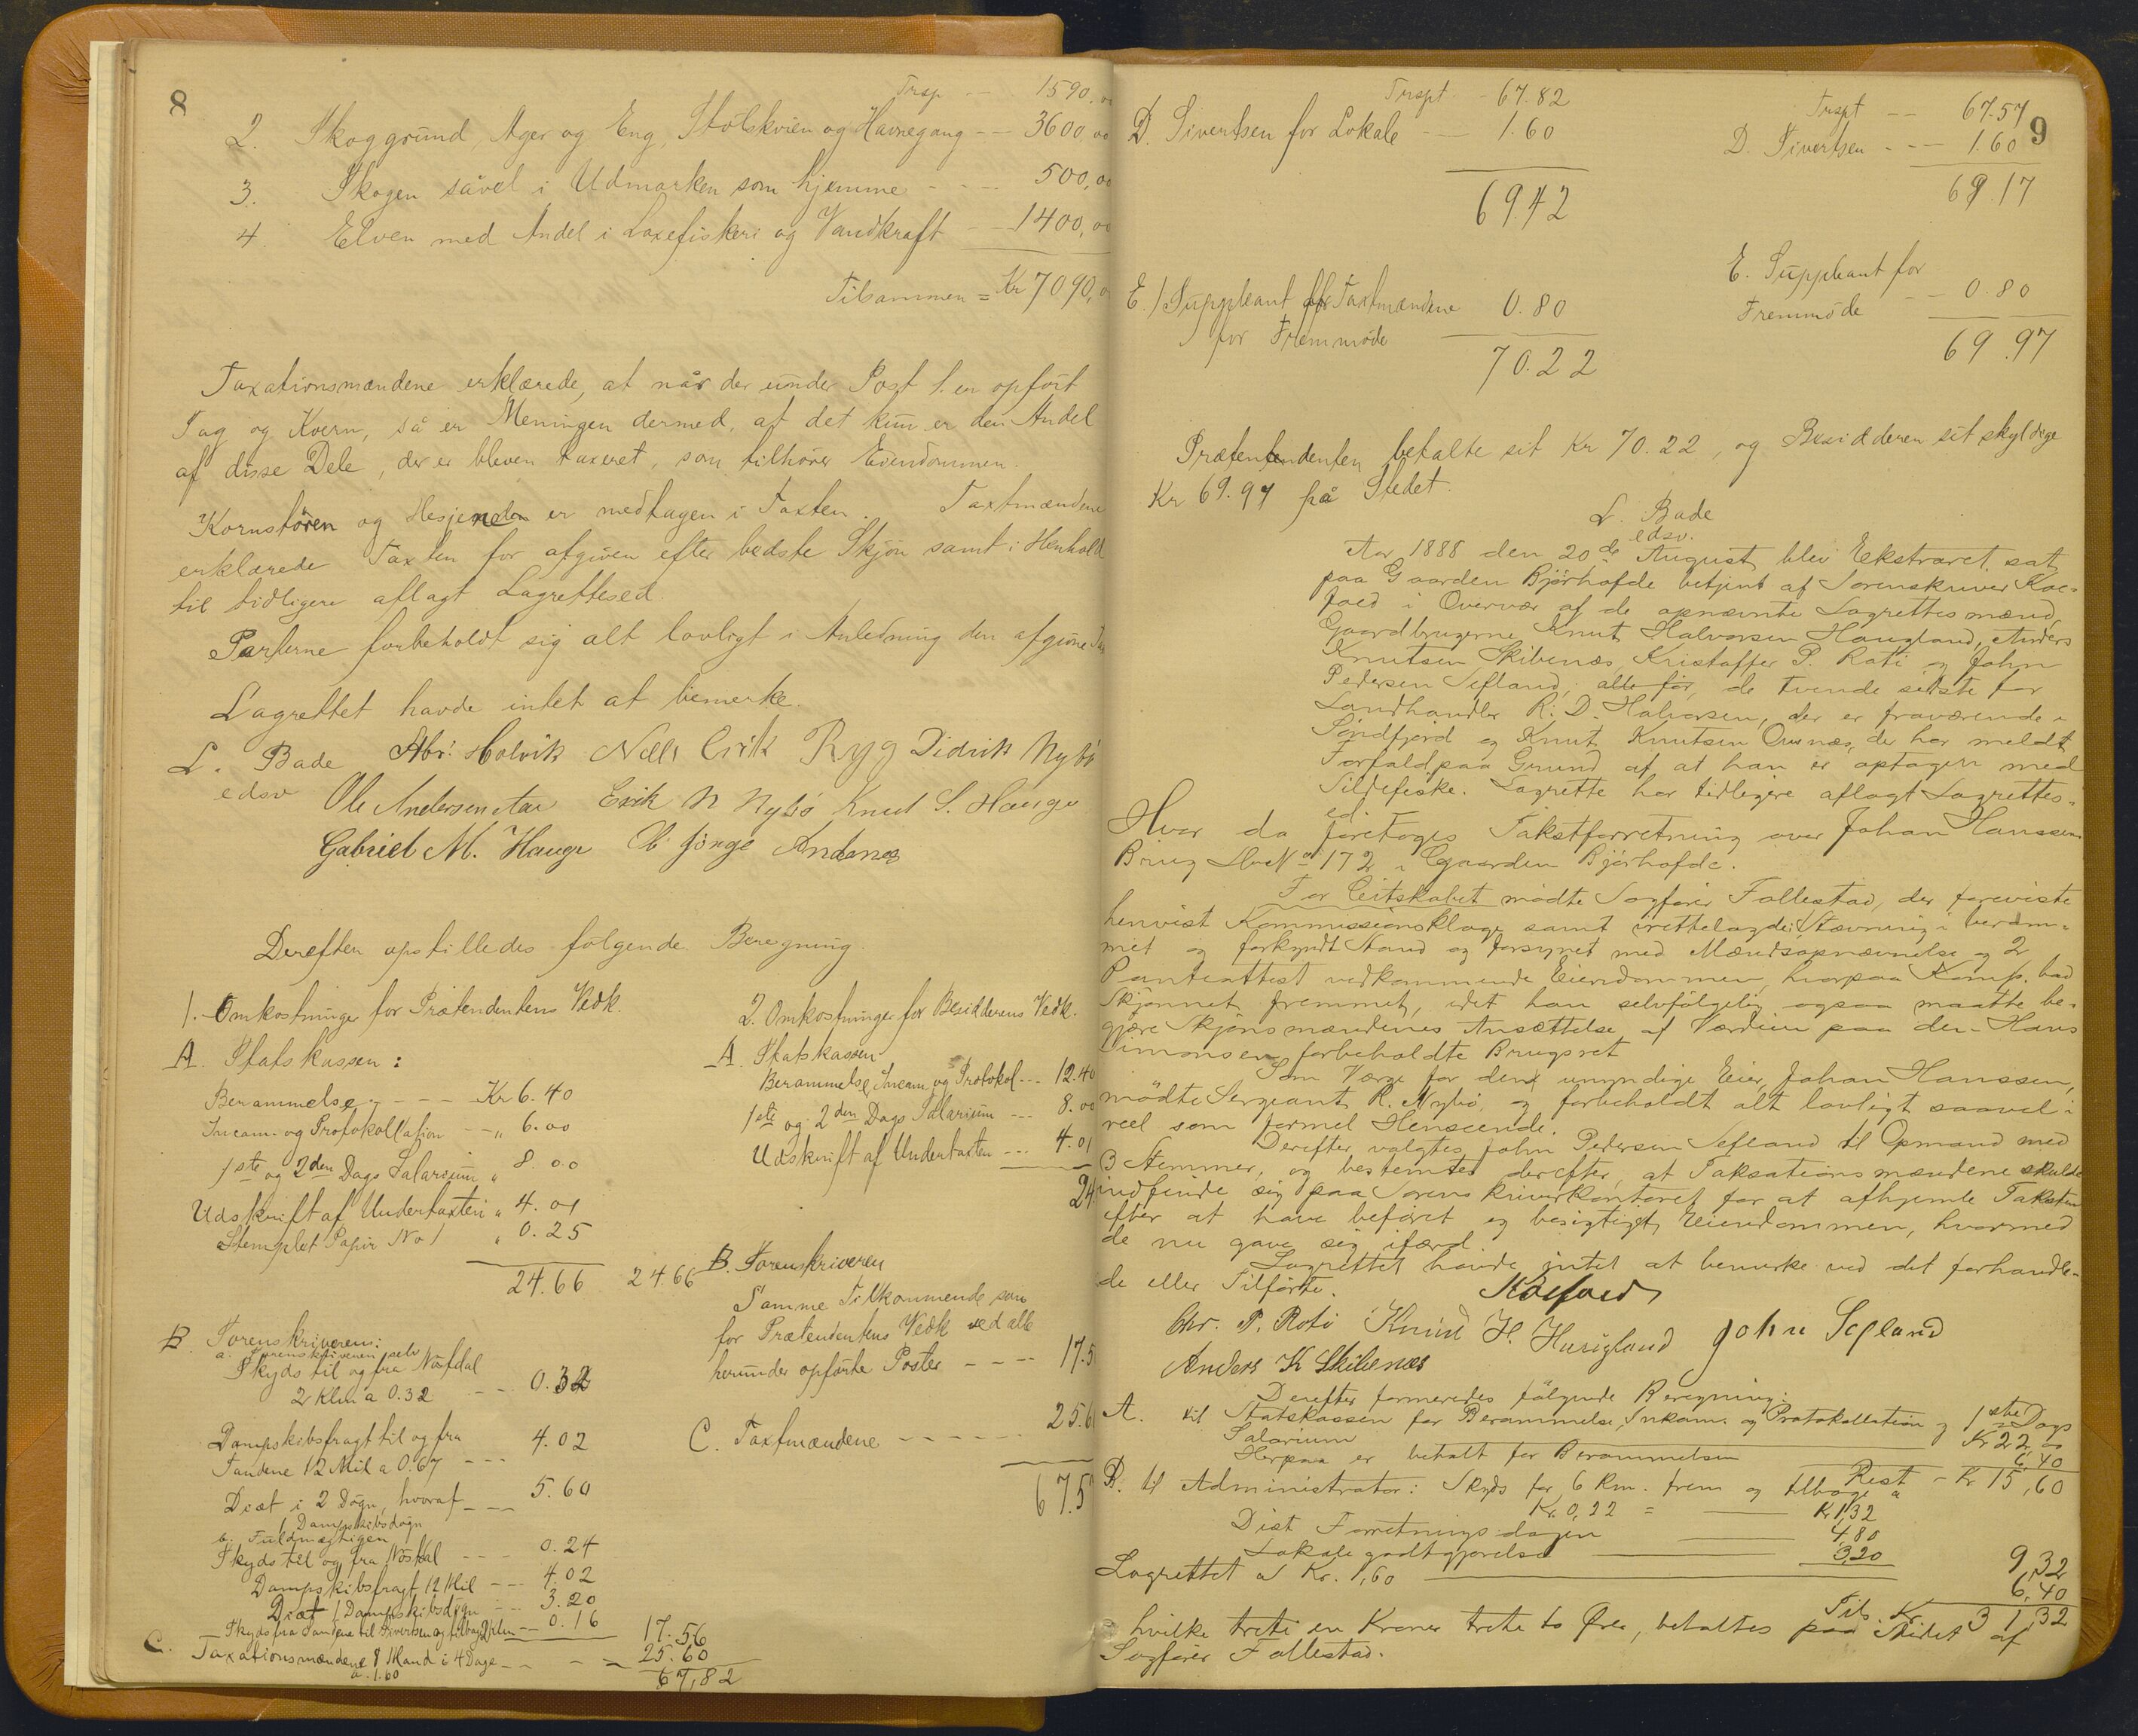 8
Trsp — 1590,00
2. Skoggrund, Ager og Eng, Stölskvien og Havnegang — 3600,00
3. Skogen såvel i Udmarken som hjemme - - - - 500,00
4 Elven med Andel i Laxefiskeri og Vandkraft — 1400,00
Tilsammen = Kr 7090,0
Taxationsmændene erklærede, at når der under Post 1. er opført
Sag og Kvern, så er Meningen dermed, at det kun er den Andel
af disse Dele, der er bleven taxeret, som tilhører Eiendommen.
Kornstören og Hesjene er medtagen i Taxten. Taxtmændene
erklærede Taxten for afgiven efter bedste Skjön samt i Henhold
til tidligere aflagt Lagrettesed.
Parterne forbeholdt sig alt lovligt i Anledning den afgivne
Lagrettet havde intet at bemerke.
L. Bade Abr. Holvik Nells Erik Ryg Didrik Nybö
edsv Ole Andersen Erik N Nybö Knud S. Hauge
Gabriel M. Hauge Andenes
Derefter opstilledes følgende Beregning.
1. Omkostninger for Prætendentens Vedk.
A. Statskassen:
Berammelse - - - - Kr 6.40
Incam. og Protokollation - - „ 6.00
1ste og 2den Dags Salarium „ 8.00
Udskrift af Undertaxten „ 4.01
Stemplet Papir No 1 „ 0.25
24.66 24.66
B. Sorenskriveren:
a. Sorenskriveren selv
Skyds til og fra Nöstdal
2 Klm a 0.32 - - 0.32
Dampskibsfragt til og fra
Sandene 12 Mil a 0.67 - - - 4.02
Diæt i 2 Dögn, hvoraf - - - 5.60
1 Dampskibsdögn
b. Fuldmægtigen
Skyds til og fra Nöstdal - - - 0.24
Dampskibsfragt 12 Mil - - - 4.02
Diæt 1 Dampskibsdögn - - - 3.20
Skyds fra Sandene til Sivertsen og tilbage 2 klm - - 0.16 17.56
C. Taxationsmændene 8 Mand i 4 Dage - - - - 25.60
a 1.60 67,82
2. Omkostninger for Besidderens Vedk.
A. Statskassen
Berammelse, Incam. og Protokol - - - 12.40
1ste og 2den Dags Salarium - - - 8.00
Udskrift af Undertaxten - - - 4.01
24
B. Sorenskriveren
Samme Tilkommende som
for Prætendentens Vedk ved alle
herunder opførte Poster - - - - 17.5
C. Taxtmændene - - - - - - 25.6
67.5
Trspt - 67.82
D. Sivertsen for Lokale — 1.60
69.42
E.) Suppleant for Taxtmændene 0.80
for Fremmöde
70.22
9
Trspt - - 67.57
D. Sivertsen - - - 1.60
69.17
E. Suppleant for
Fremmöde - - 0.80
69.97
Prætendenten betalte sit Kr 70.22 og Besidderen sit skyldige
Kr 69.97 på Stedet.
L. Bade
edsv.
Aar 1888 den 20de August blev Ekstraret sat
paa Gaarden Björhofde betjent af Sorenskriver Koe-
foed i Overvær af de opnævnte Lagrettesmænd,
Gaardbrugerne Knut Halvorsen Haugland, Anders
Knutsen Skibenæs, Kristoffer P. Roti og John
Pedersen Sefland, alle for, de tvende sidste for
Landhandler R. D. Halvorsen, der er fraværende i
Söndfjord og Knut Knutsen Ousnæs, der har meldt
Forfald paa Grund af at han er optagen med
Sildefiske. Lagrette har tidligere aflagt Lagrettes-
ed.
Hvor da foretoges Takstforretning over Johan Hanssen
Brug Lbr No 172 i Gaarden Björhofde.
For Citskabet mödte Sagförer Follestad, der foreviste
henvist Kommissionsklage samt irettelagde Stævning i beram-
met og forkyndt Stand og forsynet med Mændsopnævnelse og 2
Panteattest vedkommende Eiendommen, hvorpaa Komp. bad
Skjönnet fremmet, idet han selvfölgelig ogsaa maatte be-
gjære Skjönsmændenes Ansættelse af Værdien paa den Hans
Simonsen forbeholdte Brugsret
Som Værge for den umyndige Eier, Johan Hanssen,
mödte Sergeant R. Nybö, og forbeholdt alt lovligt saavel i
reel som formel Henseende.
Derefter valgtes John Pedersen Sefland til Opmand med
3 Stemmer, og bestemtes derefter, at Taksationsmændene skulde
indfinde sig paa Sorenskriverkontoret for at afhjemle Taksten
efter at have beföret og besigtiget Eiendommen, hvormed
de nu gave sig ifærd.
Lagrettet havde intet at bemerke ved det forhandle-
de eller Tilförte. Koefoed
Chr. P. Roti Knud H. Haugland John Sefland
Anders K Skibenæs
Derefter formeredes fölgende Beregning:
A. til Statskassen for Berammelse, Inkam. og Protokollation og 1ste Dags
Salarium Kr 22,00
Herpaa er betalt for Berammelsen 6,40
Rest - Kr 15,60
B. til Administrator: Skyds for 6 Km. frem og tilbage a
Kr. 0,22 = Kr 1,32
Diæt Forretningsdagen 4,80
Lokale godtgjörelse 3,20 9,32
Lagrettet a Kr. 1,60 6,40
Tils. Kr 31,32
hvilke treti en Kroner treti to Öre, betaltes paa Stedet af
Sagförer Follestad.